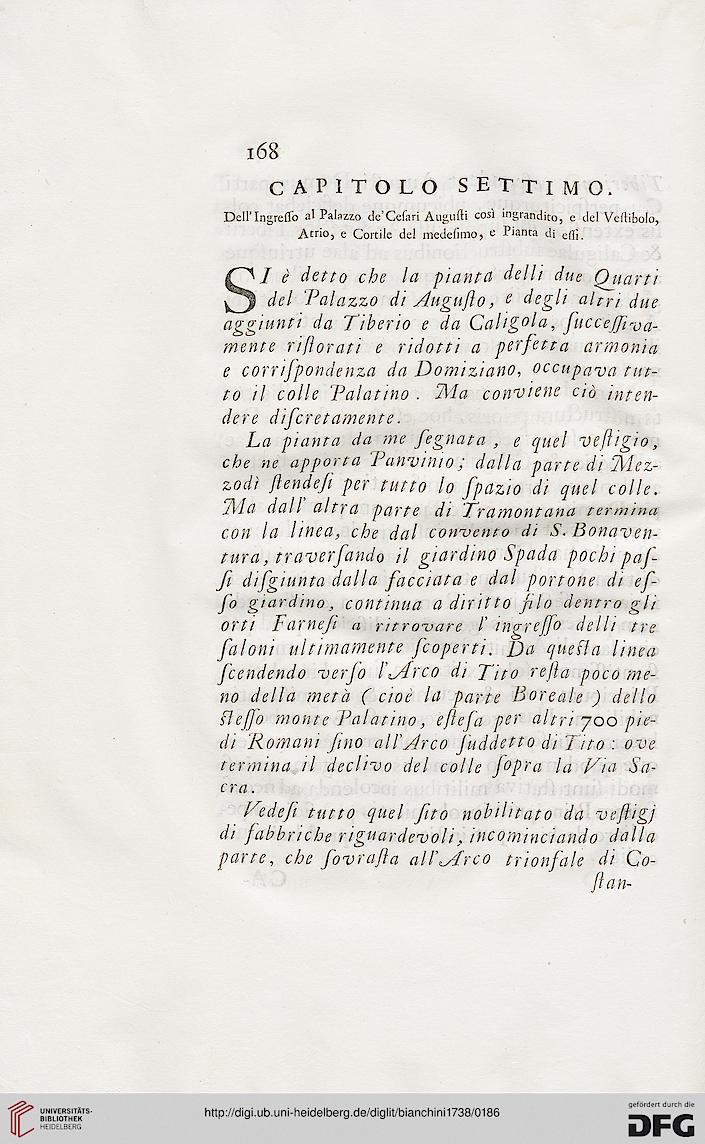 168
CAPITOLO SETTIMO.
Dell'Ingreſſo al Palazzo de'Ceſari Auguſti così ingrandito, e del Veſtibolo,
Atrio, e Cortile del medeſimo, e Pianta di eſſi.
SI è detto che la pianta delli due Quarti
del Palazzo di Auguſto, e degli altri due
aggiunti da Tiberio e da Caligola, ſucceſſiva-
mente riſtorati e ridotti a perfetta armonia
e corriſpondenza da Domiziano, occupava tut-
to il colle Palatino. Ma conviene ciò inten-
dere diſcretamente.
La pianta da me ſegnata, e quel veſtigio,
che ne apporta Panvinio; dalla parte di Mez-
zodì ſtendeſi per tutto lo ſpazio di quel colle.
Ma dall' altra parte di Tramontana termina
con la linea, che dal convento di S. Bonaven-
tura, traverſando il giardino Spada pochi paſ-
ſi diſgiunta dalla facciata e dal portone di eſ-
ſo giardino, continua a diritto filo dentro gli
orti Farneſi a ritrovare l' ingreſſo delli tre
ſaloni ultimamente ſcoperti. Da queſta linea
ſcendendo verſo l'Arco di Tito reſta poco me-
no della metà (cioè la parte Boreale) dello
ſteſſo monte Palatino, eſteſa per altri 700 pie-
di Romani ſino all'Arco ſuddetto di Tito: ove
termina il declivo del colle ſopra la Via Sa-
cra.
Vedeſi tutto quel ſito nobilitato da veſtigj
di fabbriche riguardevoli, incominciando dalla
parte, che ſovraſta all'Arco trionfale di Co-
ſtan-
UNIVERSITÄTS-
BIBLIOTHEK
HEIDELBERG
http://digi.ub.uni-heidelberg.de/diglit/bianchini1738/0186
gefördert durch die
DFG